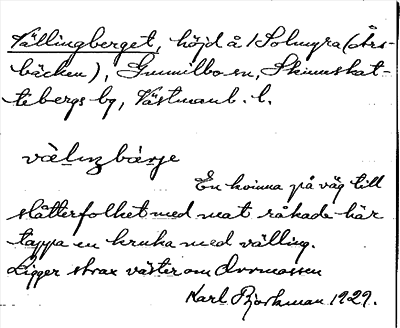 Vällingberget, höjd å 1 Solmyra (Års-
bäcken), Gunnilbo sn, Skinnskat-
tebergs bg, Västmanl. l.
vä̀lıŋbärje
En kvinna på väg till
slåtterfolket med mat råkade här
tappa en kruka med välling.
Ligger strax väster om Orrmossen
Karl Björkman 1929.